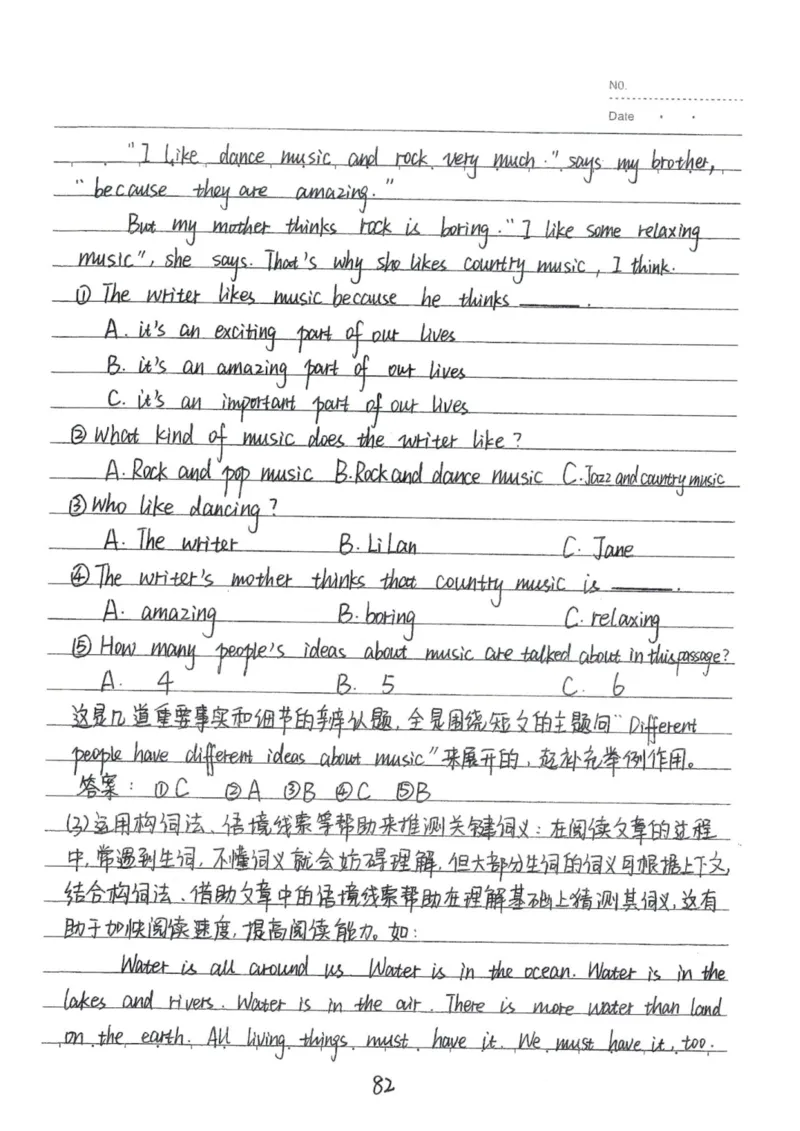 NO.
Date
"I like dance music and rock very much." says my brother,
"because they are amazing."
But my mother thinks rock is boring. "I like some relaxing
music", she says. That's why she likes country music, I think.
① The writer likes music because he thinks ______.
A. it's an exciting part of our lives
B. it's an amazing part of our lives
C. it's an important part of our lives
② What kind of music does the writer like?
A. Rock and pop music B. Rock and dance music C. Jazz and country music
③ Who like dancing?
A. The writer B. Li Lan C. Jane
④ The writer's mother thinks that country music is ______.
A. amazing B. boring C. relaxing
⑤ How many people's ideas about music are talked about in this passage?
A. 4 B. 5 C. 6
这是几道重要事实和细节的辨认题，全是围绕短文的主题句"Different
people have different ideas about music"来展开的，起补充举例作用。
答案：①C ②A ③B ④C ⑤B
(3)运用构词法、语境线索等帮助来推测关键词义：在阅读文章的过程
中，常遇到生词，不懂词义就会妨碍理解，但大部分生词的词义可根据上下文，
结合构词法、借助文章中的语境线索帮助在理解基础上猜测其词义，这有
助于加快阅读速度，提高阅读能力。如：
Water is all around us. Water is in the ocean. Water is in the
lakes and rivers. Water is in the air. There is more water than land
on the earth. All living things must have it. We must have it, too.
82